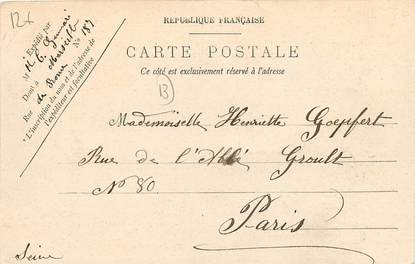 12x
RÉPUBLIQUE FRANÇAISE
CARTE POSTALE
Ce côté est exclusivement réservé à l'adresse
Expédié par
M
Demt à Marseille
Rue de Rome No 187
* L'inscription du nom et de l'adresse de
l'expéditeur est facultative
B
Mademoiselle Henriette Goepfert
Rue de l'Abbé Groult
No 80
Paris
Seine